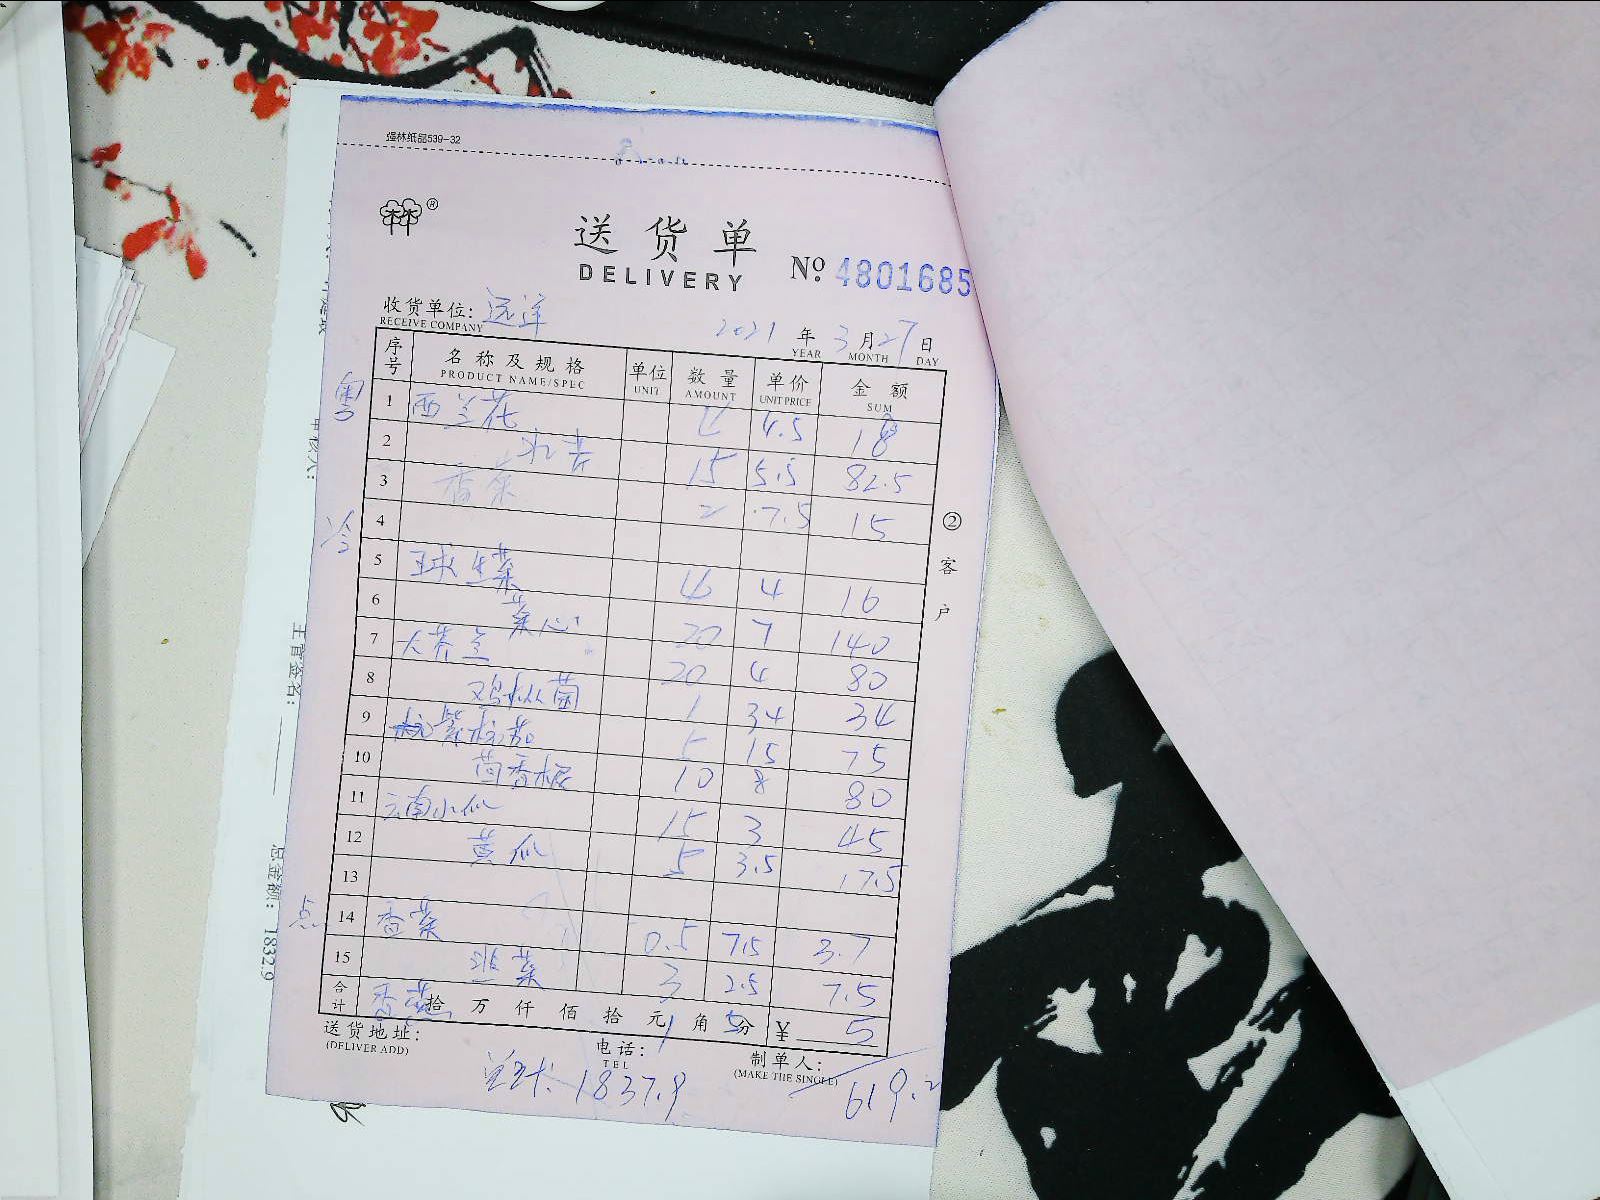 煜林纸品539-32
送货单
DELIVERY
No. 4801685
收货单位: 远洋
RECEIVE COMPANY
2021 年 3 月 27 日
YEAR MONTH DAY
序号 名称及规格 单位 数量 单价 金额
PRODUCT NAME/SPEC UNIT AMOUNT UNIT PRICE SUM
粤 1 西兰花 4 4.5 18
2 15 5.5 82.5
3 香菜 2 7.5 15
冷 4
5 球生菜 4 4 16
6 菜心 20 7 140
7 大芥兰 20 4 80
8 鸡枞菌 1 34 34
9 5 15 75
10 茴香根 10 8 80
11 云南小瓜 15 3 45
12 黄瓜 5 3.5 17.5
13
点 14 香菜 0.5 7.5 3.7
15 韭菜 3 2.5 7.5
合计 拾 万 仟 佰 拾 元 1 角 5 分 ¥ 5
送货地址:
(DELIVER ADD)
电话:
TEL
制单人:
(MAKE THE SINGLE)
619.2
1837.9
② 客户
主管签名:
总金额: 1832.9